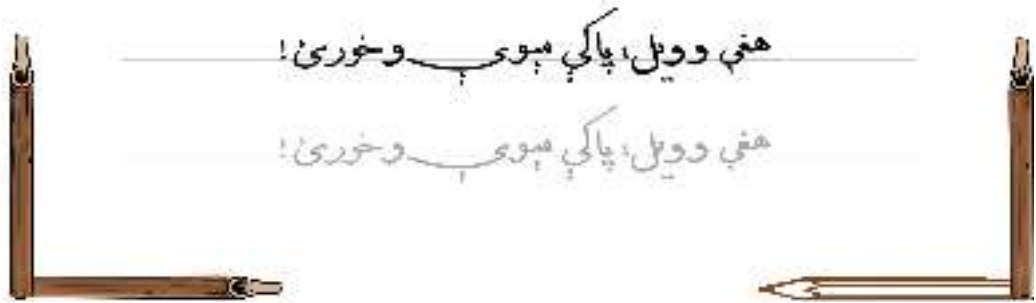 هغې وويل، پاکې مېوې وخورئ!
هغې وويل، پاکې مېوې وخورئ!